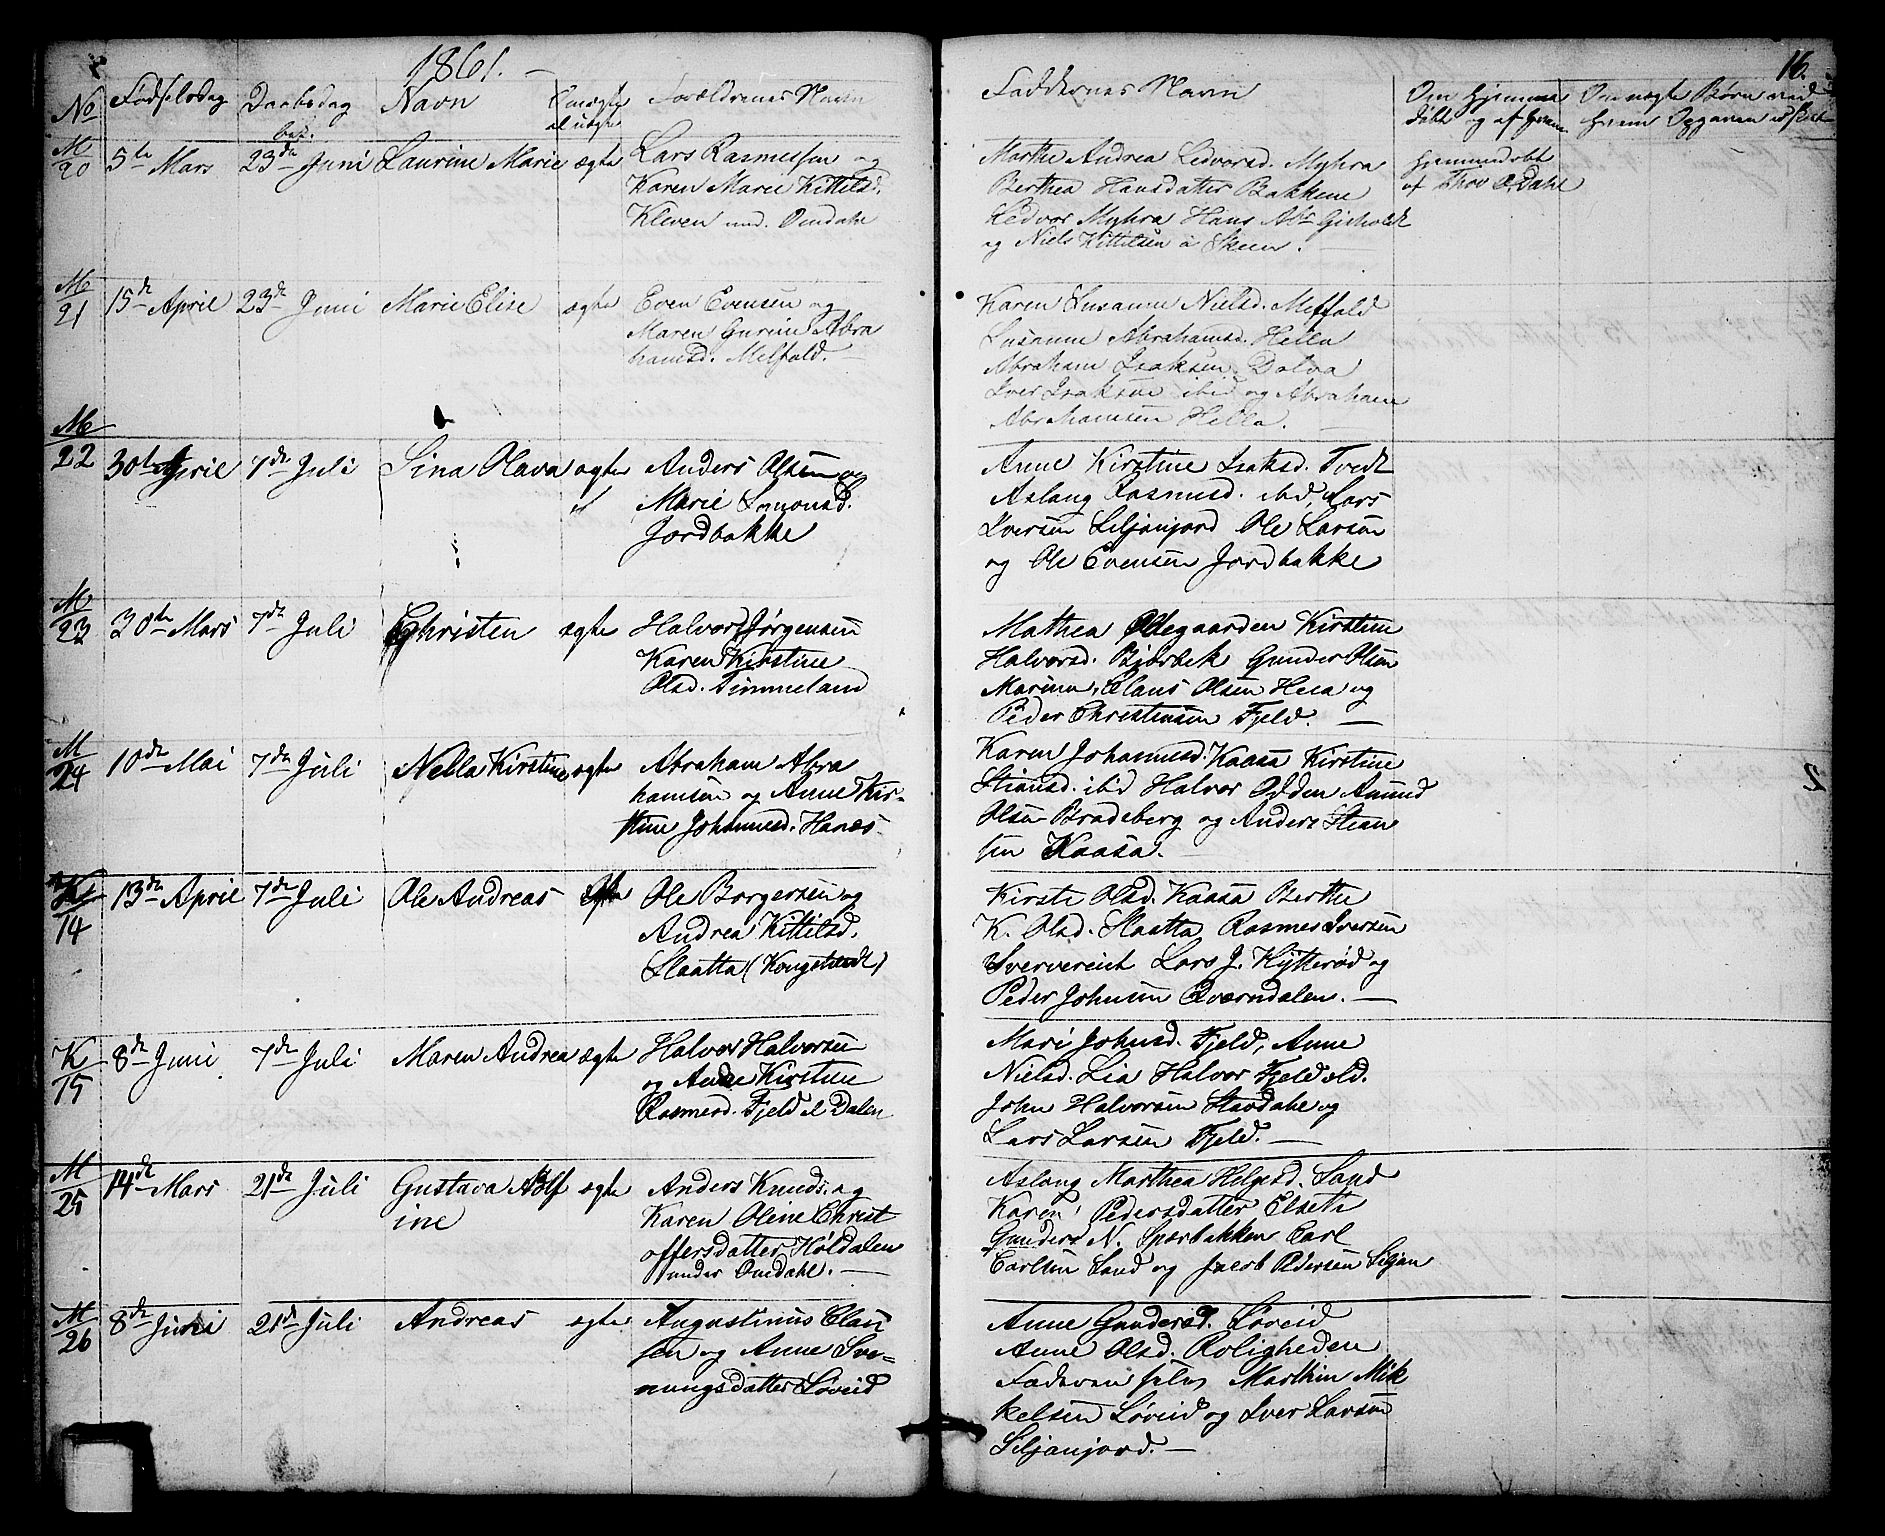 1861.
16.
No Fødselsdag Daabsdag Navn Om ægte el uægte Forældrenes Navn
Faddernes Navn Om hjemme døbt og af hvem Om uægte Børn med hvem Opgaven udstedt
M 20 5te Mars bek. 23de Juni Laurine Marie ægte Lars Rasmussen og
Karen Marie Kittilsd.
Kleven und. Omdahl
Marthe Andrea Ledvorsd. Myhra
Berthea Hansdatter Bakkene
Ledvor Myhra Hans Abr. Gisholdt
og Niels Kittilsen a Skeen.
hjemmedøbt
af Thov O. Dahl
M 21 15de April 23de Juni Marie Elise ægte Even Evensen og
Maren Gurine Abra
hamsd. Melfald.
Karen Susanne Nielsd. Melfald
Susanne Abrahamsd. Hella
Abraham Isaksen Dolva
Iver Isaksen ibid og Abraham
Abrahamsen Hella.
M 22 30te April 7de Juli Sina Olava ægte Anders Olsen og
Marie Simonsd.
Jordbakke
Anne Kirstine Isaksd. Tvedt
Aslaug Rasmusd. ibid, Lars
Iversen Siljanjord Ole Larsen
og Ole Evensen Jordbakke
M 23 30te Mars 7de Juli Christen ægte Halvor Jørgensen
Karen Kirstine
Olsd. Timmeland
Mathea Ødegaarden Kirstine
Halvorsd. Bjørbek Gunder Olsen
Claus Olsen Heia og
Peder Christensen Fjeld.
M 24 10de Mai 7de Juli Nella Kirstine ægte Abraham Abra
hamsen og Anne Kir-
stine Johannesd. Hanes
Karen Johannesd. Kaasa Kirstine
Stiansd. ibid Halvor Odden Amund
Olsen Bradeberg og Anders Stian
sen Kaasa.
K 14 13de April 7de Juli Ole Andreas ægte Ole Borgersen og
Andrea Kittilsd.
Slaatta (Kongstvedt)
Kirsti Olsd. Kaasa Berthe
K. Olsd. Slaatta Rasmus Iversen
Lars J. Kytterød og
Peder Johnsen Qværndalen.
K 15 8de Juni 7de Juli Maren Andrea ægte Halvor Halvorsen
og Anne Kirstine
Rasmusd. Fjeld el Dalen
Mari Johnsd. Fjeld, Anne
Nielsd. Lia Halvor Fjeld old.
John Halvorsen Stavdahl og
Lars Larsen Fjeld.
M 25 14de Mars 21de Juli Gustava Adolf ægte Anders Knuds. og
ine
Karen Oline Christ
offersdatter Høldalen
under Omdahl.
Aslaug Marthea Helgesd. Sand
Karen Pedersdatter Elseth
Gunders N. Sporbakken Carl
Carlsen Sand og Jacob Pedersen Siljan
M 26 8de Juni 21de Juli Andreas ægte Augustinus Claus
sen og Anne Sve-
nungsdatter Løveid
Anne Gundersd. Løveid
Anne Olsd. Roligheden
Faderen selv Marthin Mik
kelsen Løveid og Iver Larsen
Siljanjord.